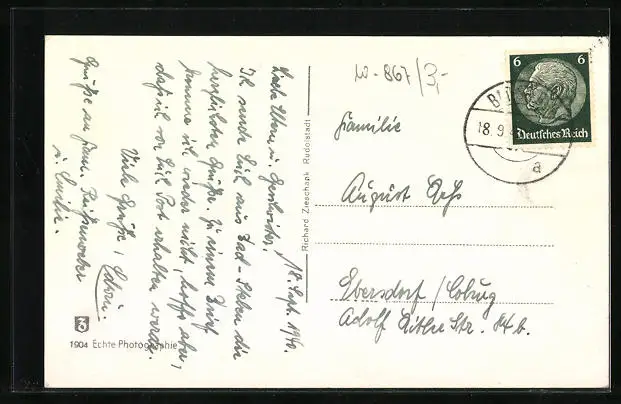 18. Sept. 1940.
Liebe Eltern u. Geschwister!
Ich sende Euch aus Bad-Steben die
herzlichsten Grüße. Zu einem Brief
komme ich wieder nicht, hoffe aber,
daß ich von Euch Post erhalten werde.
Viele Grüße, Edwin.
Grüße an Fam.
u. Emilie.
1904 Echte Photographie
Richard Zieschank Rudolstadt
W-867/3,-
Familie
August
Ebersdorf / Coburg
Adolf Hitler Str. 84 b.
6 6
Deutsches Reich
18.9.
a